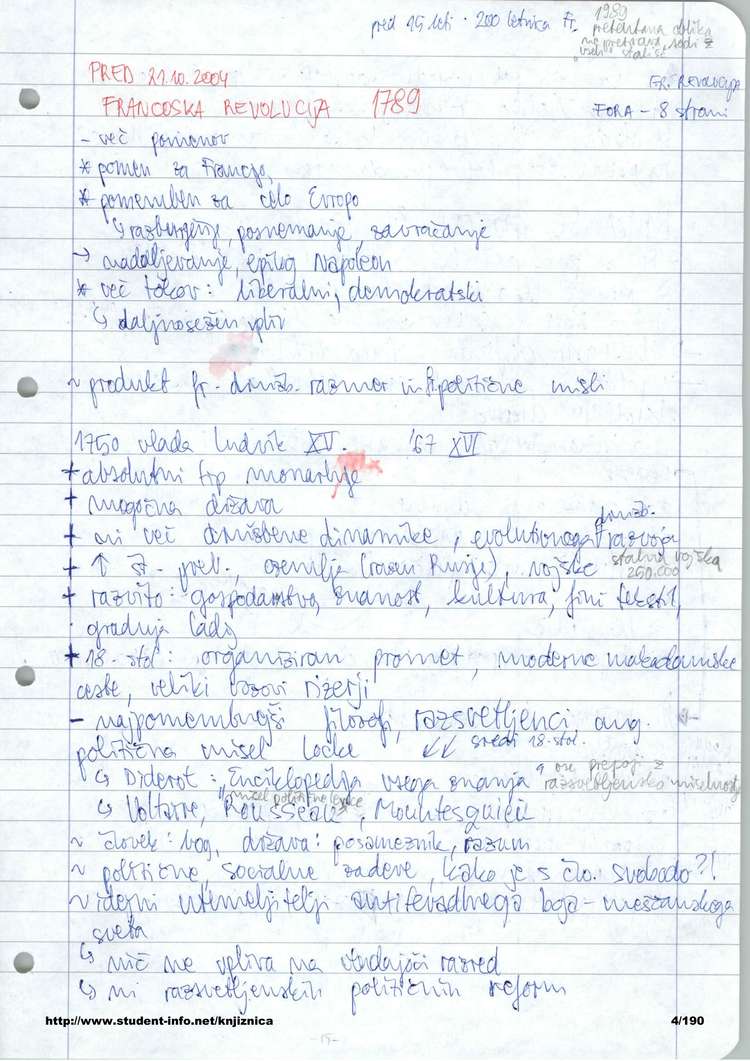 pred 15 leti · 200 letnica Fr.
1989
vseh stališč
PRED: 21.10.2004
FR. REVOLUCIJA
FRANCOSKA REVOLUCIJA 1789
FORA - 8 strani
- več pomenov
* pomen za Francijo,
* pomemben za celo Evropo
↳ razburjenje, posnemanje, zavračanje
→ nadaljevanje, epilog Napoleon
* več tokov: liberalni, demokratski
↳ daljnosežen vpliv
~ produkt fr. družb. razmer in fr. politične misli
1750 vlada Ludvik XV. '67 XVI
+ absolutni tip monarhije
+ mogočna država
+ ni več družbene dinamike, evolutivnega družb. razvoja
+ ↑ št. preb., ozemlja (razen Rusije), vojske stalna vojska 250.000
+ razvito: gospodarstvo, znanost, kultura, fini tekstil,
gradnja ladij
+ 18. stol: organiziran promet, moderne makadamske
ceste, veliki vozovi
- najpomembnejši filozofi, razsvetljenci ang.
politična misel Locke ↙↙ sredi 18. stol.
↳ Diderot: Enciklopedija vsega znanja vse prepoji z razsvetljensko miselnostjo
↳ Voltaire, Rousseau, Montesquieu
~ človek: bog, država: posameznik, razum
~ politične, socialne zadeve, kako je s člo. svobodo?!
~ idejni utemeljitelji antifevdalnega boja - meščanskega
sveta
↳ nič ne vpliva na vladajoči razred
↳ ni razsvetljenskih političnih reform
http://www.student-info.net/knjiznica 4/190